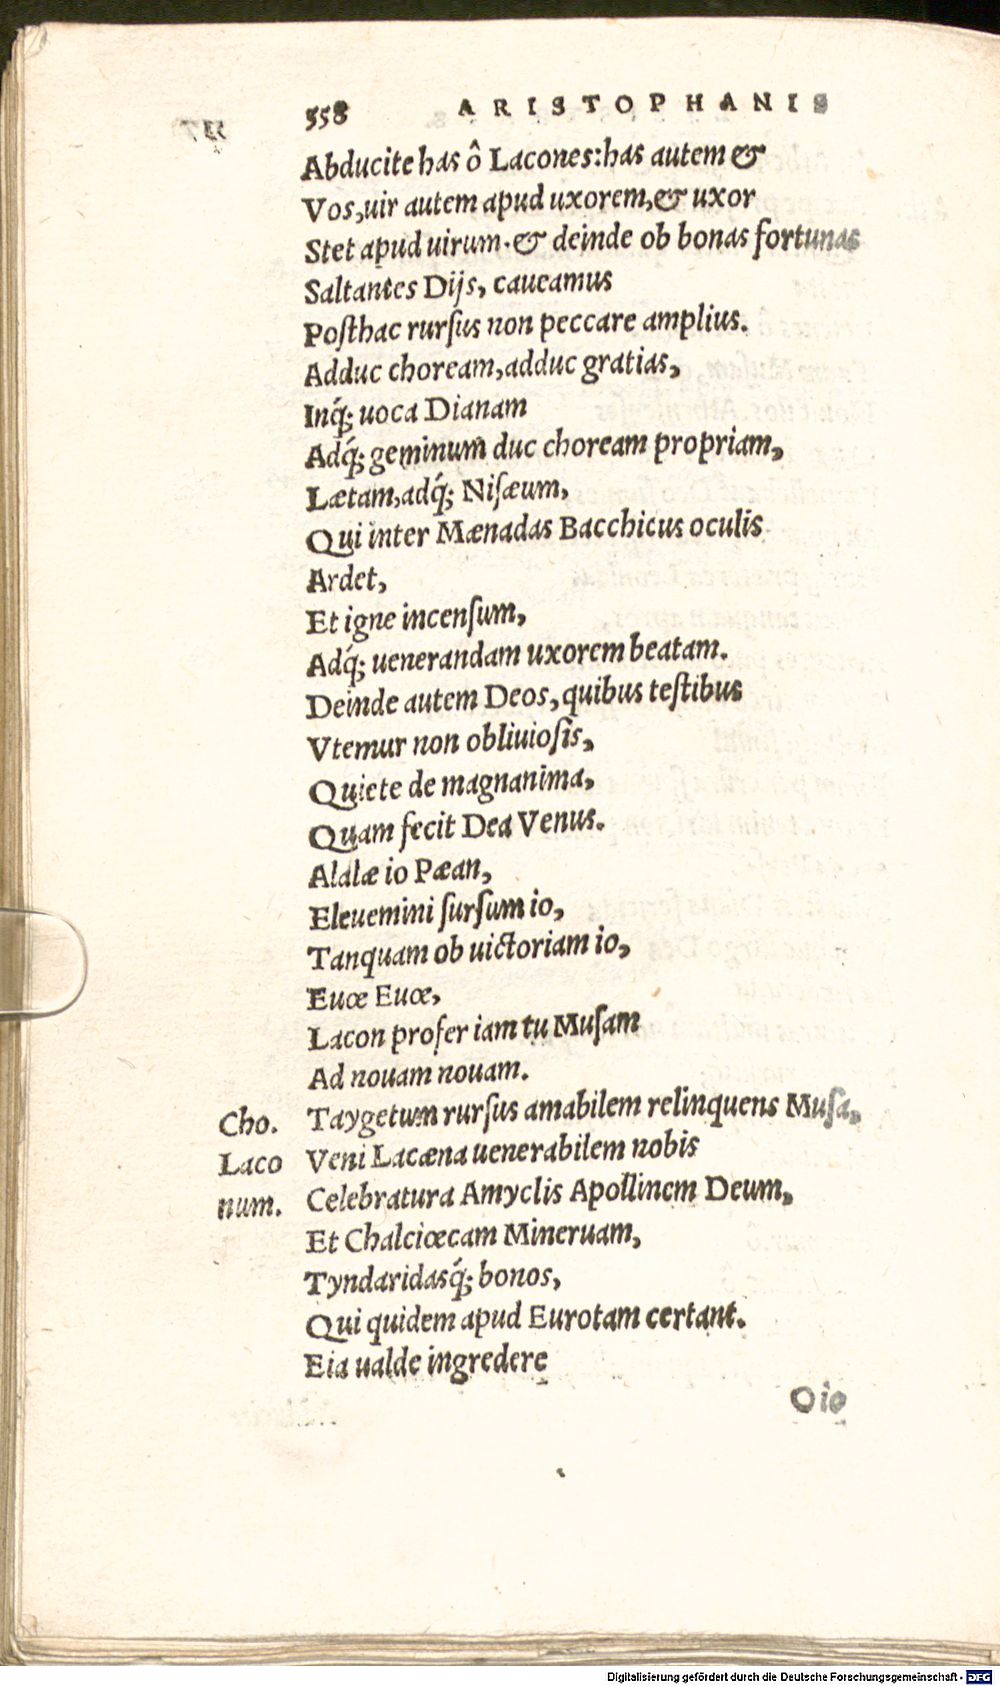 558 ARISTOPHANIS
Abducite has ô Lacones:has autem &
Vos,uir autem apud uxorem,& uxor
Stet apud uirum.& deinde ob bonas fortunas
Saltantes Dijs, caueamus
Posthac rurſus non peccare amplius.
Adduc choream,adduc gratias,
Inq́; uoca Dianam
Adq́; geminum duc choream propriam,
Lætam,adq́; Niſæum,
Qui inter Mænadas Bacchicus oculis
Ardet,
Et igne incenſum,
Adq́; uenerandam uxorem beatam.
Deinde autem Deos, quibus teſtibus
Vtemur non obliuioſis,
Quiete de magnanima,
Quam fecit Dea Venus.
Alalæ io Pæan,
Eleuemini ſurſum io,
Tanquam ob uictoriam io,
Euœ Euœ,
Lacon profer iam tu Muſam
Ad nouam nouam.
Cho. Taygetum rurſus amabilem relinquens Muſa,
Laco Veni Lacæna uenerabilem nobis
num. Celebratura Amyclis Apollinem Deum,
Et Chalciœcam Mineruam,
Tyndaridasq́; bonos,
Qui quidem apud Eurotam certant.
Eia ualde ingredere
Oio
Digitalisierung gefördert durch die Deutsche Forschungsgemeinschaft - DFG